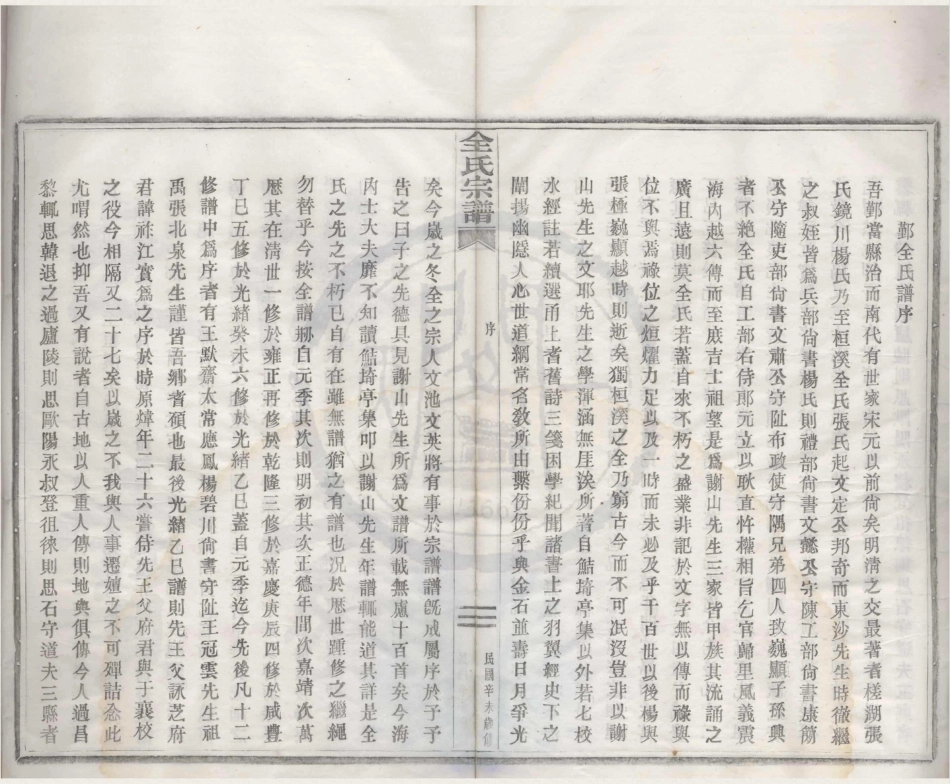 鄞全氏譜序
吾鄞當縣治而南代有世家宋元以前尙矣明清之交最著者樣湖張
氏鏡川楊氏乃至桓溪全氏張氏起文定公邦奇而東沙先生時徹繼
之叔姪皆爲兵部尙書楊氏則禮部尙書文懿公守陳工部尙書康簡
公守隨吏部尙書文肅公守阯布政使守隅兄弟四人政巍顯子孫興
者不絶全氏自工部右侍郞元立以耿直忤權相旨乞官歸里風義震
海內越六傳而至庶吉士祖望是爲謝山先生三家皆甲族其流誦之
廣且遠則莫全氏若蓋自來不朽之盛業非記於文字無以傳而祿與
位不與焉祿位之烜燿力足以及一時而未必及乎千百世以後楊與
張極巍顯越時則逝矣獨桓溪之全乃窮古今而不可冺沒豈非以謝
山先生之文耶先生之學渾涵無厓涘所著自鮚埼亭集以外若七校
水經註若續選甬上耆舊詩三箋困學紀聞諸書上之羽翼經史下之
闡揚幽隱人心世道綱常名敎所由繫份份乎與金石並壽日月爭光
全氏宗譜
序
二
民國辛未 修
矣今歲之冬全之宗人文池文英將有事於宗譜譜旣成屬序於予予
告之曰子之先德具見謝山先生所爲文譜所載無慮十百首矣今海
內士大夫靡不知讀鮚埼亭集叩以謝山先生年譜輒能道其詳是全
氏之先之不朽已自有在雖無譜猶之有譜也况於歷世踵修之繼繩
勿替乎今按全譜刱自元季其次則明初其次正德年間次嘉靖次萬
歷其在淸世一修於雍正再修於乾隆三修於嘉慶庚辰四修於咸豐
丁巳五修於光緒癸未六修於光緒乙巳蓋自元季迄今先後凡十二
修譜中爲序者有王默齋太常應鳳楊碧川尙書守阯王冠雲先生祖
禹張北泉先生謹皆吾鄉耆碩也最後光緒乙巳譜則先王父詠芝府
君諱祚江實爲之序於時原煒年二十六嘗侍先王父府君與于襄校
之役今相隔又二十七矣以歲之不我與人事遷嬗之不可殫詰念此
尤喟然也抑吾又有說者自古地以人重人傳則地與俱傳今人過昌
黎輒思韓退之過廬陵則思歐陽永叔登徂徠則思石守道夫三縣者